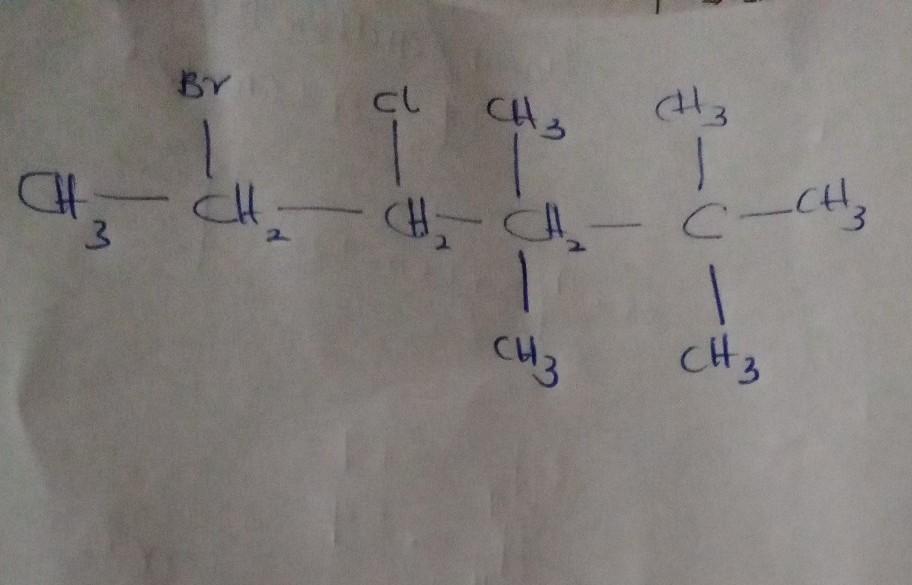 Br Cl CH3 CH3
CH3 — CH2 — CH2 — CH2 — C — CH3
CH3 CH3